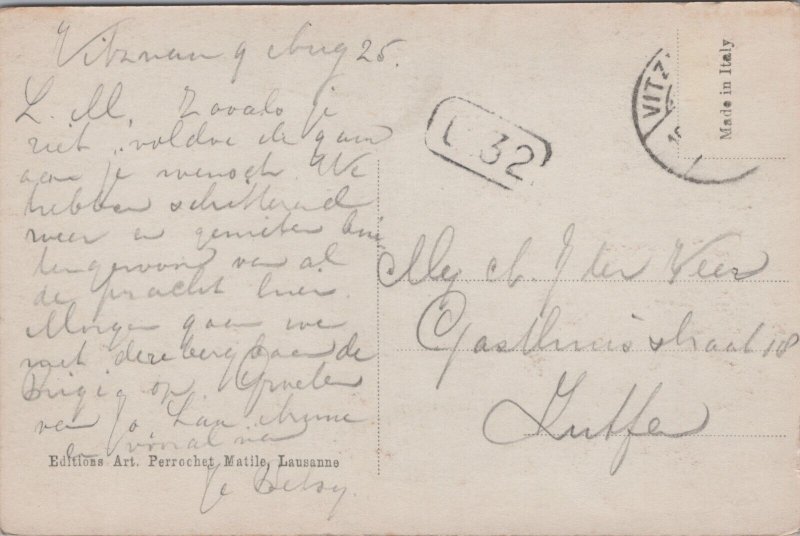 Vitznau 9 Aug 25.
L. M. Zooals je
ziet, voldoe ik gaar
aan je wensch. We
hebben schitterend
weer en genieten bui-
tengewoon van al
de pracht hier.
Morgen gaan we
met deze bergbaan de
Rigi op. Groeten
van Jo,
vooral van
Je Betsy.
Editions Art. Perrochet Matile, Lausanne
L 32
VITZ
Made in Italy
Mej. J ter Veer
Gasthuisstraat 18
Zutfen